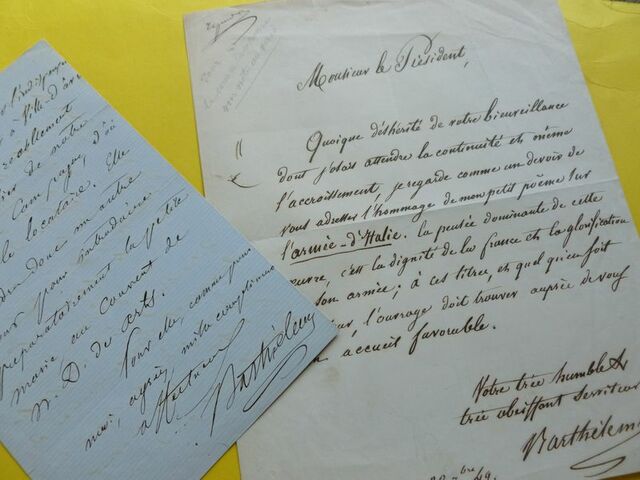 Monsieur le Président,
Quoique déshérité de votre bienveillance
dont j'osais attendre la continuité et même
l'accroissement, je regarde comme un devoir de
vous adresser l'hommage de mon petit poëme sur
l'armée-d'Italie. la pensée dominante de cette
œuvre, c'est la dignité de la france et la glorification
son armée; à ces titres, et quel qu'en soit
l'ouvrage doit trouver auprès de vous
accueil favorable.
Votre très humble &
très obéissant serviteur
Barthélemy
49.
à Ville-d'
de notre
Campagne, d'où
le locataire. Elle
donc un autre
jour pour introduire
préparatoirement la petite
marie, au couvent de
N. D. de arts.
Pour elle, comme pour
moi, agréez, mille complimens
affectueux
Barthélemy